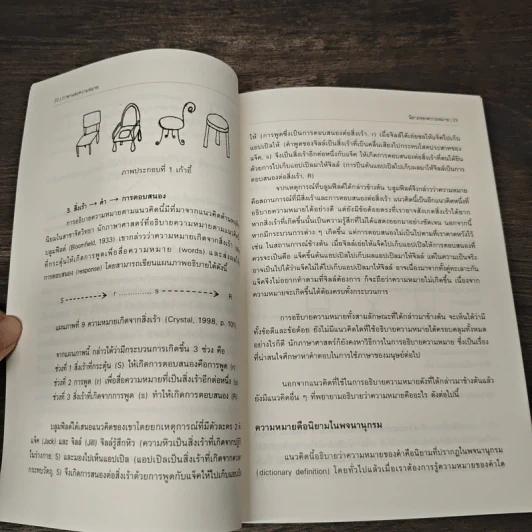 22 | ภาษาและความหมาย
ภาพประกอบที่ 1 เก้าอี้
3. สิ่งเร้า → คำ → การตอบสนอง
การอธิบายความหมายตามแนวคิดนี้มีที่มาจากแนวคิดด้าน
นิยมในสาขาจิตวิทยา นักภาษาศาสตร์ที่อธิบายความหมายตามแนวคิด
บลูมฟิลด์ (Bloomfield, 1933) เขากล่าวว่าความหมายเกิดจากสิ่งเร้า
ที่กระตุ้นให้เกิดการพูดเพื่อสื่อความหมาย (words) และส่งผล
การตอบสนอง (response) โดยสามารถเขียนแผนภาพอธิบายได้ดังนี้
S r ............ s R
แผนภาพที่ 9 ความหมายเกิดจากสิ่งเร้า (Crystal, 1998, p. 101
จากแผนภาพนี้ กล่าวได้ว่ามีกระบวนการเกิดขึ้น 3 ช่วง คือ
ช่วงที่ 1 สิ่งเร้าที่กระตุ้น (S) ให้เกิดการตอบสนองคือการพูด (r)
ช่วงที่ 2 การพูด (r) เพื่อสื่อความหมายที่เป็นสิ่งเร้าอีกต่อหนึ่ง (s)
ช่วงที่ 3 สิ่งเร้าที่เกิดจากการพูด (s) ทำให้เกิดการตอบสนอง (R)
บลูมฟิลด์ได้เสนอแนวคิดของเขาโดยยกเหตุการณ์ที่มีตัวละคร 2
แจ็ค (Jack) และ จิลล์ (Jill) จิลล์รู้สึกหิว (ความหิวเป็นสิ่งเร้าที่เกิดจาก
ในร่างกาย, S) และมองไปเห็นแอปเปิล (แอปเปิลเป็นสิ่งเร้าที่เกิดจาก
กระทบวัตถุ, S) จึงเกิดการตอบสนองต่อสิ่งเร้าด้วยการพูดกับแจ็คให้ไปเก็บแอปเปิล
นิยามของความหมาย | 23
ให้ (การพูดซึ่งเป็นการตอบสนองต่อสิ่งเร้า, r) เมื่อจิลล์ได้เอ่ยขอให้แจ็คไปเก็บ
แอปเปิลให้ (คำพูดของจิลล์เป็นสิ่งเร้าที่เป็นคลื่นเสียงไปกระทบโสตประสาทของ
แจ็ค, s) จึงเป็นสิ่งเร้าอีกต่อหนึ่งกับแจ็ค ให้เกิดการตอบสนองต่อสิ่งเร้าที่ตนได้ยิน
ด้วยการไปเก็บแอปเปิลมาให้จิลล์ (การปีนต้นแอปเปิลไปเก็บผลมาให้จิลล์เป็นการ
ตอบสนองต่อสิ่งเร้า, R)
จากเหตุการณ์ที่บลูมฟิลด์ได้กล่าวข้างต้น บลูมฟิลด์จึงกล่าวว่าความหมาย
คือสถานการณ์ที่มีสิ่งเร้าและการตอบสนองต่อสิ่งเร้า แนวคิดนี้เป็นอีกแนวคิดหนึ่งที่
อธิบายความหมายได้อย่างดี แต่ยังมีข้อด้อยตรงที่เราอาจสังเกตสิ่งเร้าได้ยาก
หากสิ่งเร้าที่เกิดขึ้นนั้นเป็นความรู้สึกที่ไม่ได้แสดงออกมาอย่างชัดเจน นอกจากนี้
หากมีกระบวนการต่าง ๆ เกิดขึ้น แต่การตอบสนองไม่เป็นไปตามที่เราคาดหวังไว้
เช่น ในสถานการณ์ข้างต้น เมื่อจิลล์เอ่ยให้แจ็คไปเก็บแอปเปิลให้การตอบสนองที่
ควรจะเป็นคือ แจ็คขึ้นต้นแอปเปิลไปเก็บผลแอปเปิลมาให้จิลล์ แต่ในความเป็นจริง
อาจเป็นไปได้ว่าแจ็คไม่ได้ไปเก็บแอปเปิลมาให้จิลล์ อาจเนื่องมาจากทั้งคู่ทะเลาะกัน
แจ็คจึงไม่อยากทำตามที่จิลล์ต้องการ ก็จะถือว่าความหมายไม่เกิดขึ้น เนื่องจาก
ความหมายจะเกิดขึ้นได้ต้องครบทั้งกระบวนการ
การอธิบายความหมายทั้งสามลักษณะที่ได้กล่าวมาข้างต้น จะเห็นได้ว่ามี
ทั้งข้อดีและข้อด้อย ยังไม่มีแนวคิดใดที่ใช้อธิบายความหมายได้ครอบคลุมทั้งหมด
อย่างไรก็ดี นักภาษาศาสตร์ก็ยังคงหาวิธีการในการอธิบายความหมาย ซึ่งเป็นเรื่อง
ที่น่าสนใจศึกษาหาคำตอบในการใช้ภาษาของมนุษย์ต่อไป
นอกจากแนวคิดที่ใช้ในการอธิบายความหมายดังที่ได้กล่าวมาข้างต้นแล้ว
ยังมีแนวคิดอื่น ๆ ที่พยายามอธิบายว่าความหมายคืออะไร ดังต่อไปนี้
ความหมายคือนิยามในพจนานุกรม
แนวคิดนี้อธิบายว่าความหมายของคำคือนิยามที่ปรากฏในพจนานุกรม
(dictionary definition) โดยทั่วไปแล้วเมื่อเราต้องการรู้ความหมายของคำใด